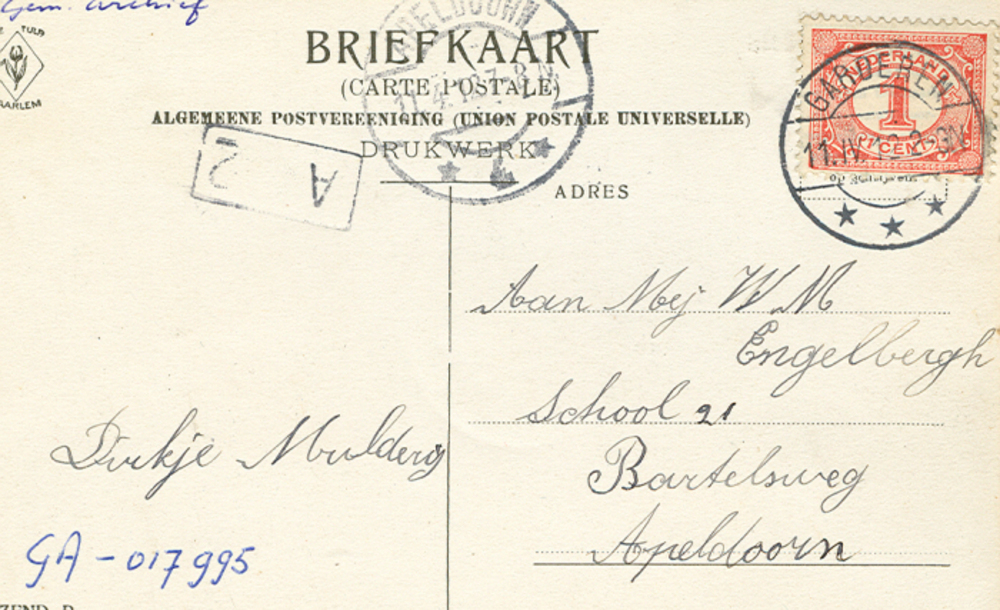 Gem. archief
TULP
HAARLEM
BRIEFKAART
(CARTE POSTALE)
ALGEMEENE POSTVEREENIGING (UNION POSTALE UNIVERSELLE)
DRUKWERK
ADRES
APELDOORN
NEDERLAND
1
CENT
GARDEREN
A
2
Aan Mej W M
Engelbergh
School 21
Bartelsweg
Apeldoorn
Dirkje Mulderij
GA - 017995